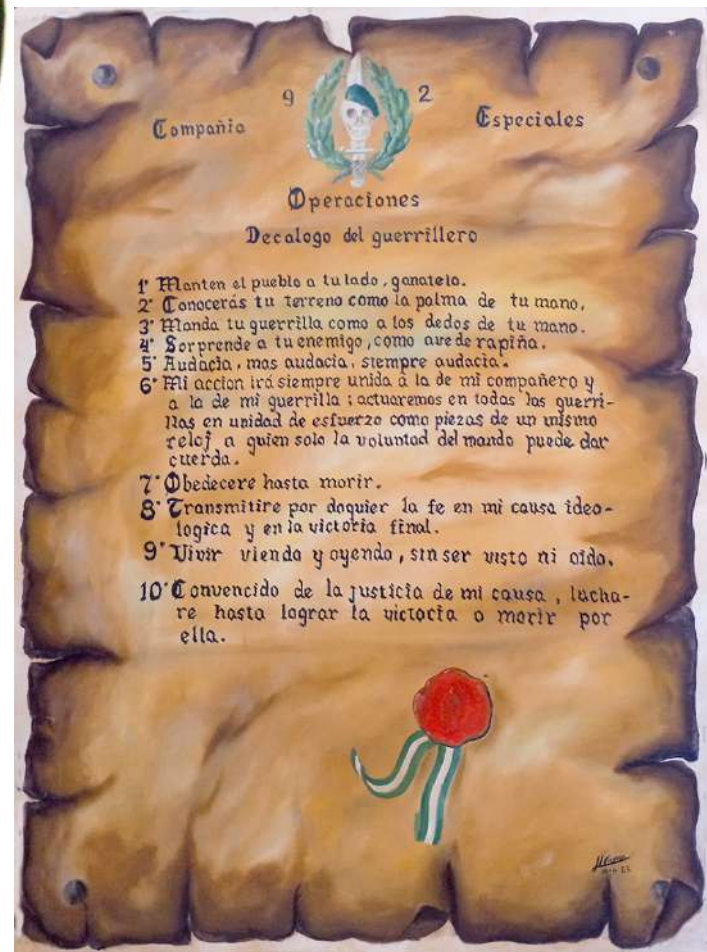 9 2
Compañia Especiales
Operaciones
Decalogo del guerrillero
1º Manten el pueblo a tu lado, ganatelo.
2º Conocerás tu terreno como la palma de tu mano,
3º Manda tu guerrilla como a los dedos de tu mano.
4º Sorprende a tu enemigo, como ave de rapiña.
5º Audacia, mas audacia, siempre audacia.
6º Mi accion irá siempre unida a la de mi compañero y
a la de mi guerrilla; actuaremos en todas las guerri-
llas en unidad de esfuerzo como piezas de un mismo
reloj a quien solo la voluntad del mando puede dar
cuerda.
7º Obedecere hasta morir.
8º Transmitire por doquier la fe en mi causa ideo-
logica y en la victoria final.
9º Vivir viendo y oyendo, sin ser visto ni oido.
10º Convencido de la justicia de mi causa, lucha-
re hasta lograr la victocia o morir por
ella.